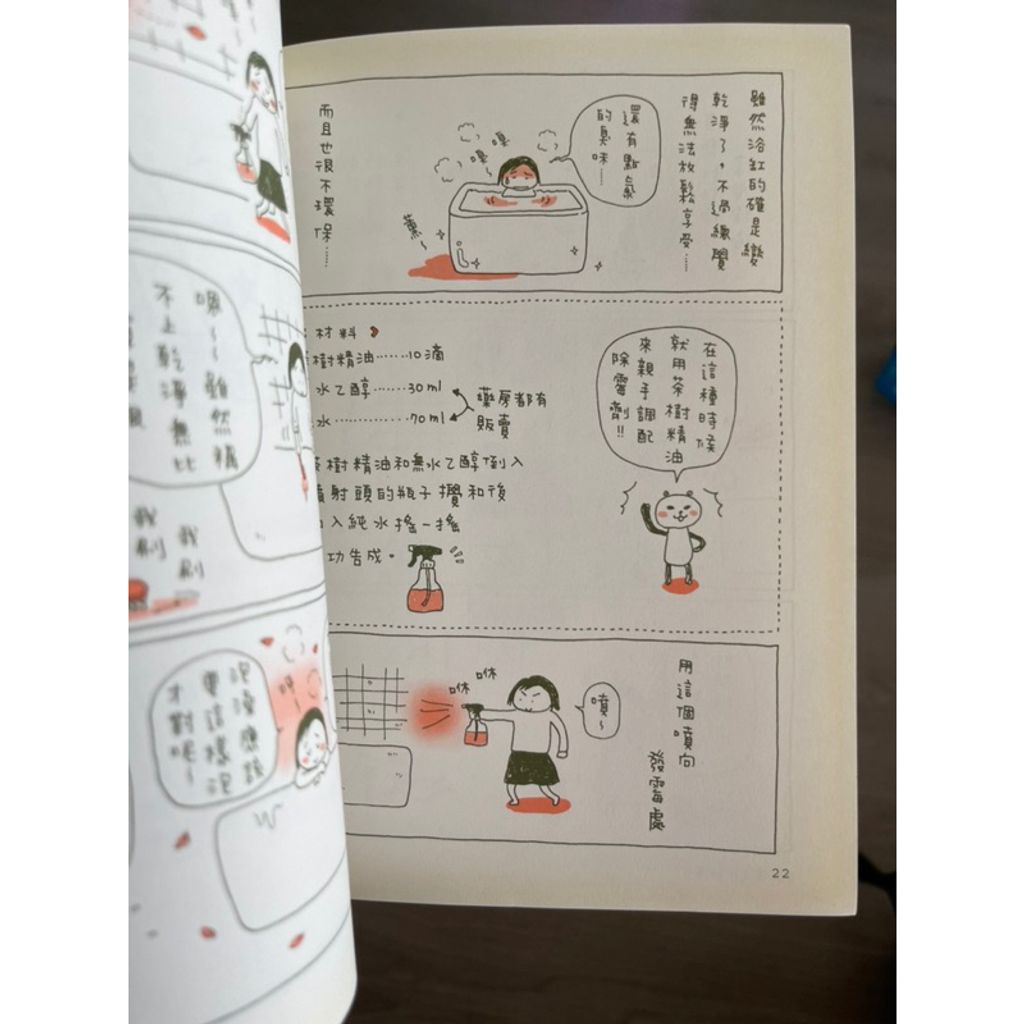 雖然浴缸的確是變
乾淨了，不過總覺
得無法放鬆享受……
還有點氯
的臭味……
嗅
嗅
薰～
而且也很不環保……
在這種時候
就用茶樹精油
來親手調配
除霉劑!!
材料
樹精油……10滴
水乙醇……30ml
水……70ml
藥房都有
販賣
樹精油和無水乙醇倒入
射頭的瓶子攪和後
入純水搖一搖
功告成。
用這個噴向
發霉處
噴～
咻
咻
22
嗯～雖然
不上乾淨無比
我刷
我刷
泡澡應該
要這樣泡
才對呢～